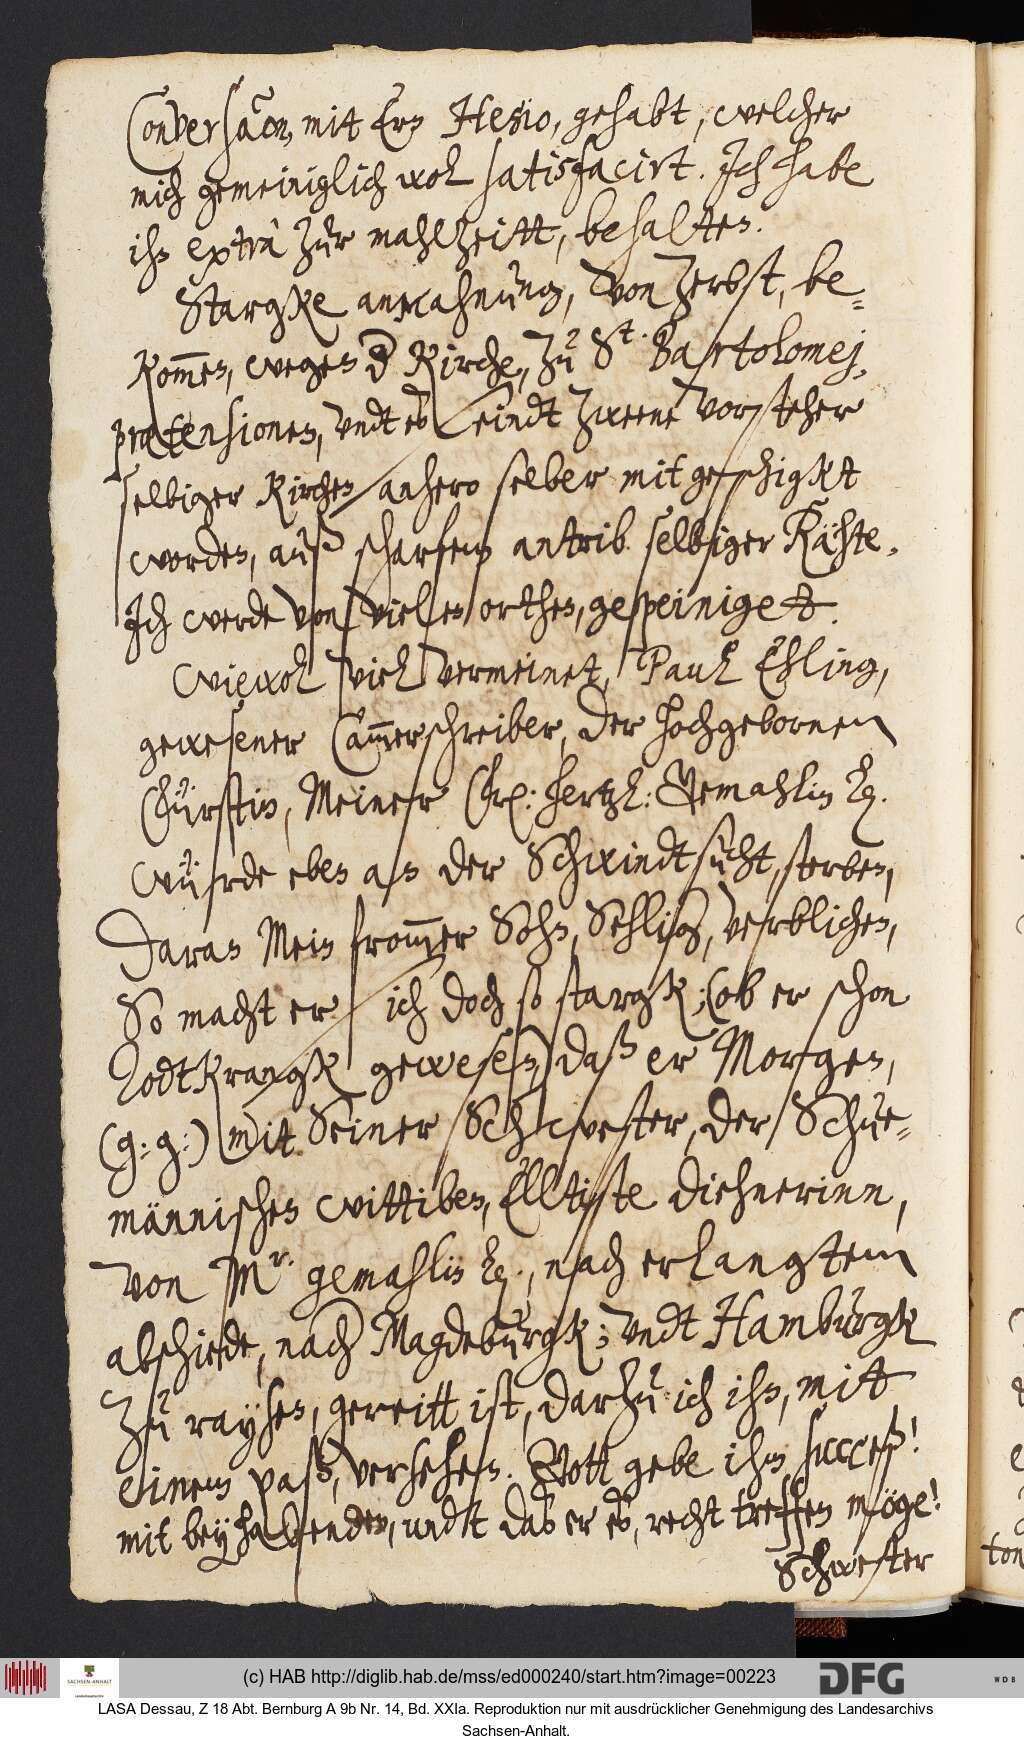 Conversaon, mit Ern Hesio, gehabt, welcher
mich gemeiniglich wol satisfacirt. Ich habe
ihn extra zur mahlzeitt, behalten.
Stargke anmahnung, von Zerbst, be=
kommen, wegen d Kirche, zu St. Bartolomej,
prætensionen, undt es seindt zweene vorsteher
selbiger Kirchen anhero selber mitgeschigkt
worden, auß scharfem antrib selbiger Rähte.
Ich werde von vielen orthen, gepeiniget.
Wiewol viel vermeinet, Paul Ehling,
gewesener Cammerschreiber, der hochgebornen
Fürstin, Meiner Fr: hertzl: Gemahlin Lg.
würde eben an der Schwindtsucht, sterben,
Daran Mein frommer Sohn, Sehlig, verblichen,
So macht er sich doch so stargk; (ob er schon
Todtkrangk gewesen) daß er Morgen,
(g: g:) mit Seiner Schwester, der Schue=
männischen wittiben, Elltiste diehnerinn,
von Mr. gemahlin Lg., nach erlangtem
abschiede, nach Magdeburgk; undt Hamburgk
zu raysen, gereitt ist, darzu ich ihn, mit
einem paß, versehen. Gott gebe ihm succeß!
mit beyhabenden, undt das er es, recht treffen möge!
Schwester
ton
(c) HAB http://diglib.hab.de/mss/ed000240/start.htm?image=00223
DFG
WDB
SACHSEN-ANHALT
LASA Dessau, Z 18 Abt. Bernburg A 9b Nr. 14, Bd. XXIa. Reproduktion nur mit ausdrücklicher Genehmigung des Landesarchivs
Sachsen-Anhalt.